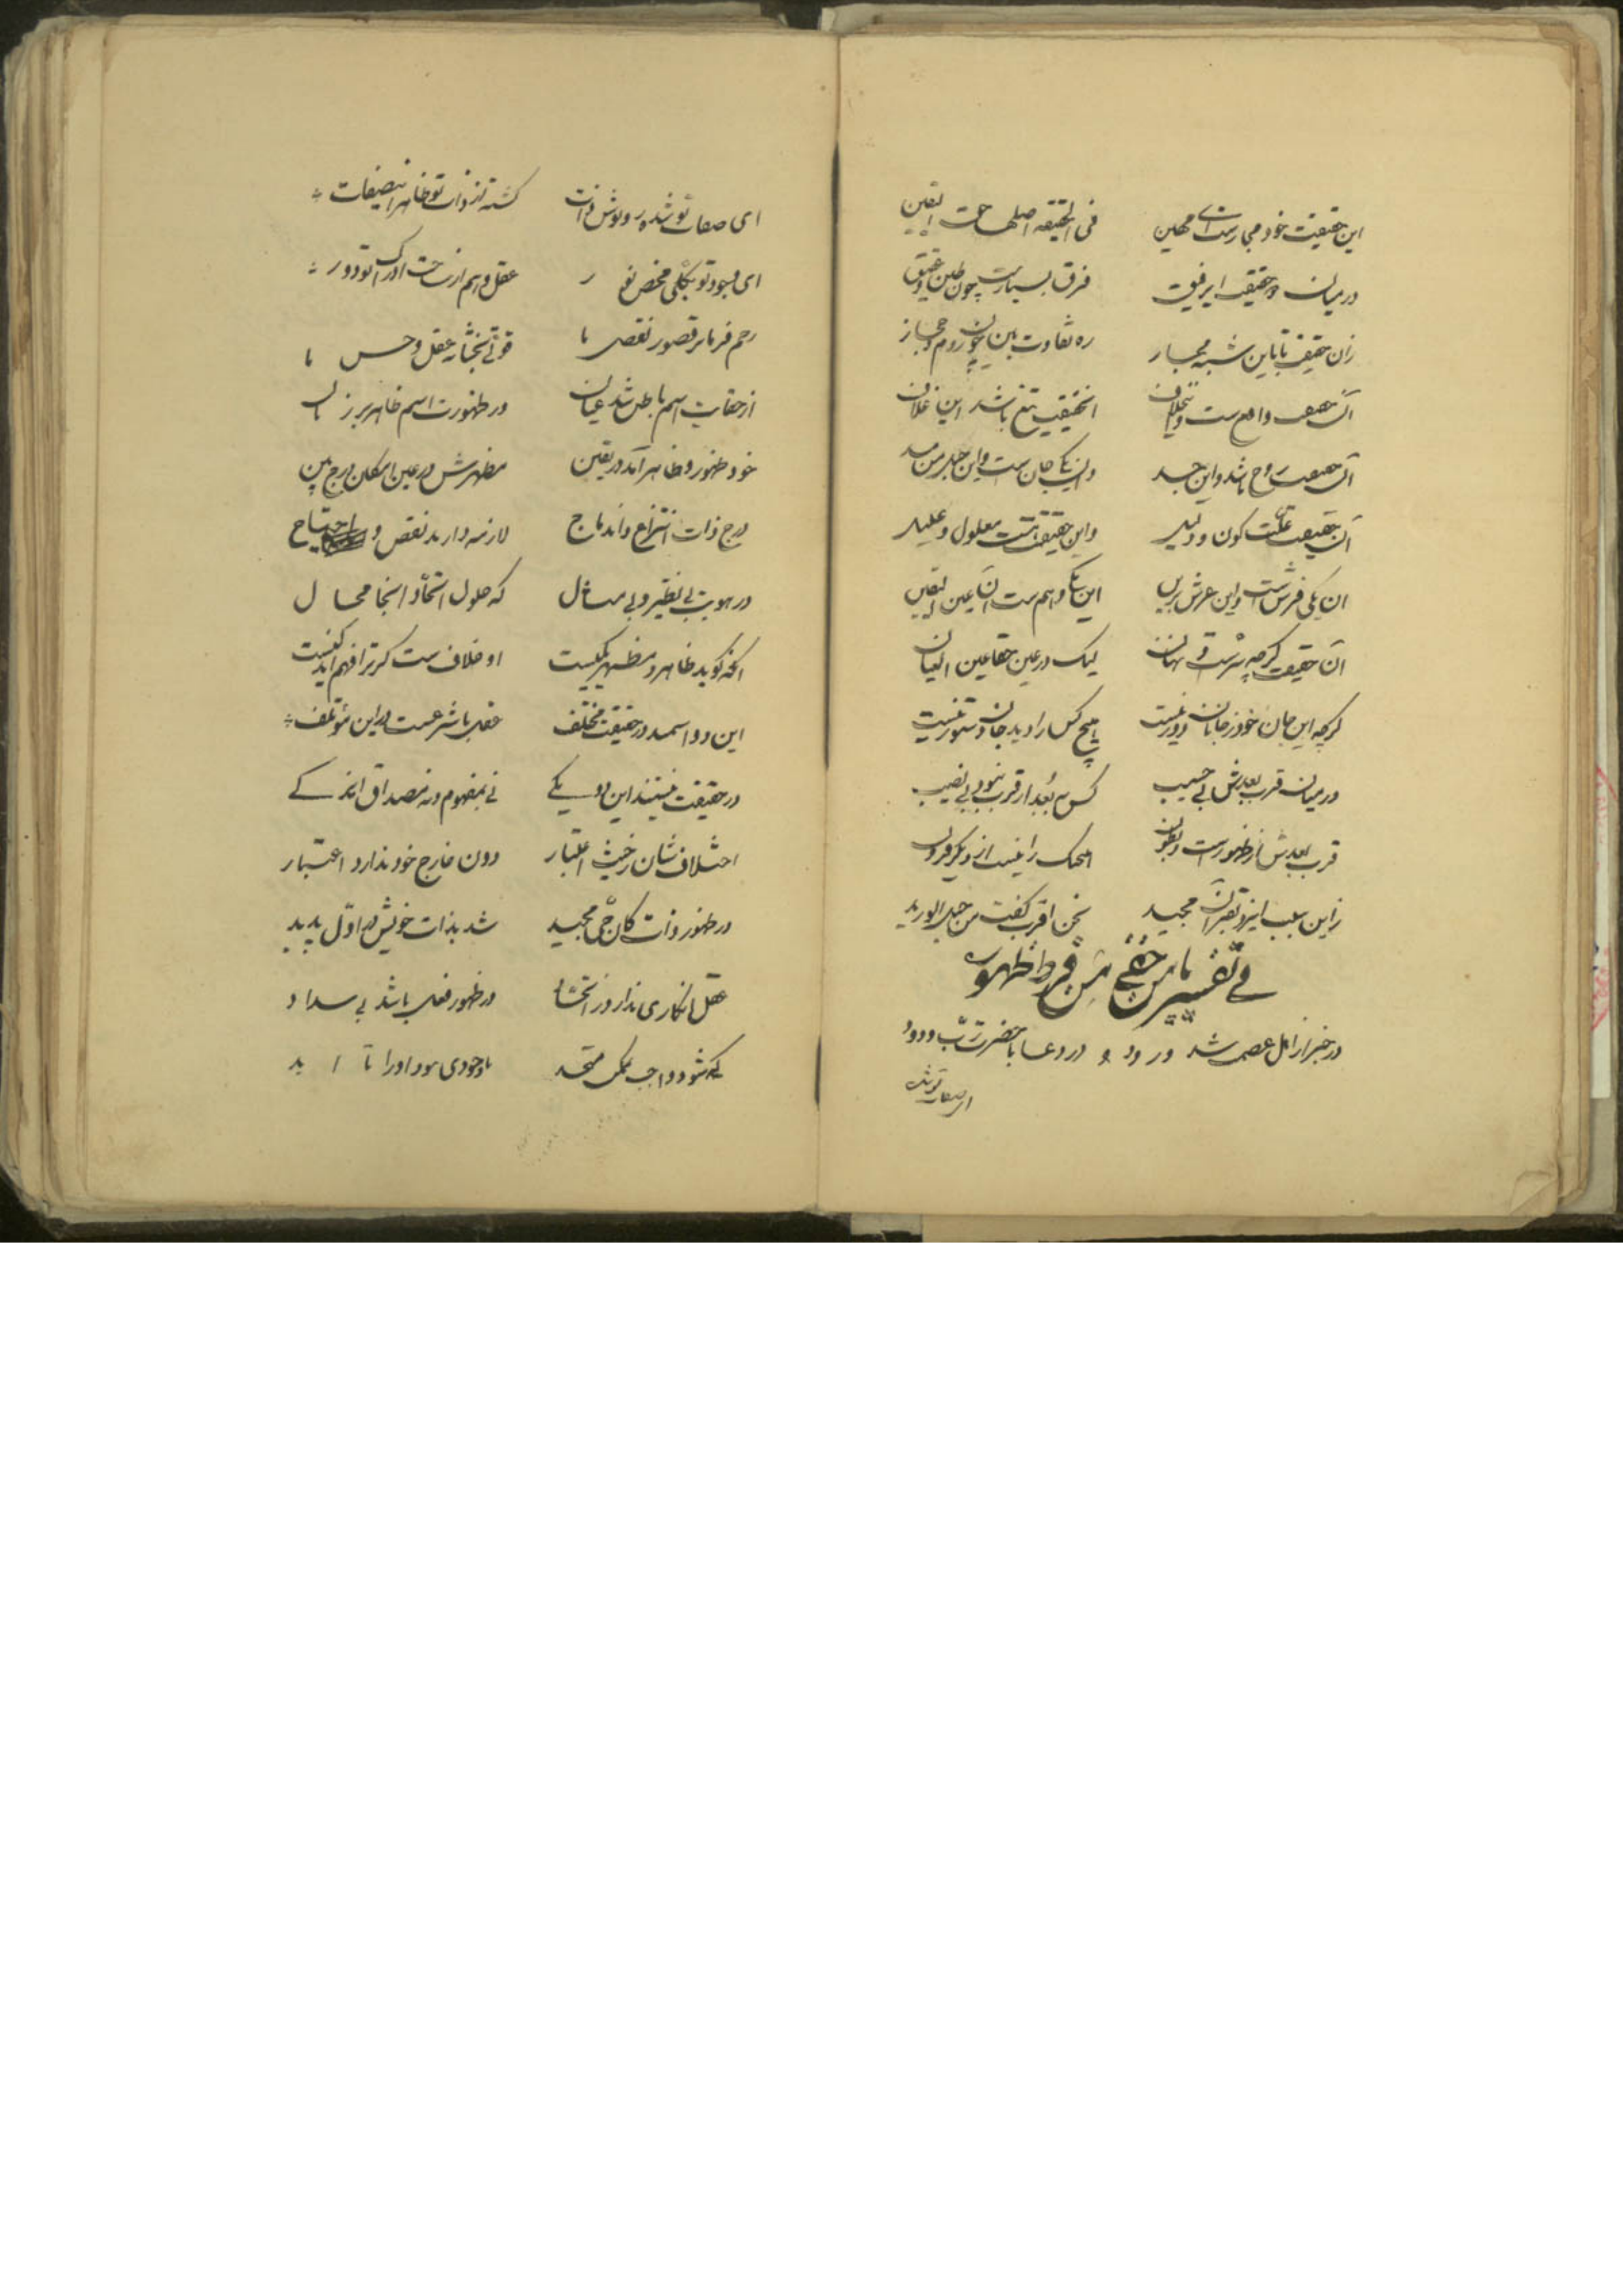 این حقیقت خود مجازست ای مهین فی الحقیقه اصلها حق الیقین
در میان دو حقیقت ای رفیق فرق بسیارست چون طین و عقیق
زان حقیقت تا باین شبه مجاز ره تفاوت بین چون روم و حجاز
آن حقیقت واقع ست و این حقیقت تیغ باشد این غلاف
آن حقیقت روح باشد و این جسد وان یکی جان ست و این حبل من مسد
آن حقیقت علت کون و دلیل و این حقیقت هست معلول و علیل
ان یکی فرش است و این عرش برین این یکی وهم ست آن عین الیقین
آن حقیقت گرچه سرست و نهان لیک در عین حقا عین العیان
گرچه این جان خود ز جانان دور نیست هیچ کس را دید جان دستور نیست
در میان قرب و بعدش بی حبیب کس به بعد از قرب نبود بی نصیب
قرب و بعدش از ظهورست و بطون هیچیک را نیست از دیگر فزون
زاین سبب ایزد بقرآن مجید نحن اقرب گفت من حبل الورید
فی تفسیر یا من خفی من فرط ظهوره
در خبر از اهل عصمت شد ورود در دعا با حضرت رب ودود
ای صفات تو شده روپوش ذات گشته از ذات تو ظاهر این صفات
ای وجود تو بکلی محض نور عقل و وهم از ساحت ادراک تو دور
رحم فرما بر قصور نقص ما قوتی بخشا به عقل و حس ما
از خفایت اسم باطن شد عیان در ظهورت اسم ظاهر بر زبان
خود ظهور و ظاهر آمد در یقین مظهرش در عین امکان درج بین
درج ذات انتزاع و اندماج لازمه دارد نقص و احتیاج
در هویت بی نظیر و بی مثال که حلول اتحاد اینجا محال
آنکه گوید ظاهر و مظهر یکیست او خلاف ست گر ترا فهم اندکیست
این دو اسمند در حقیقت مختلف عقل با شرعست در این مؤتلف
در حقیقت نیستند این دو یکی نی بمفهوم و نه مصداق اندکی
اختلاف شان ز حیث اعتبار دون خارج خود ندارد اعتبار
در ظهور ذات کان حی مجید شد بذات خویش در اول پدید
عقل انکاری ندارد ز اتحاد در ظهور فعل باشد بی سداد
که شود واجب بممکن متحد با وجودی بود او را تا ابد